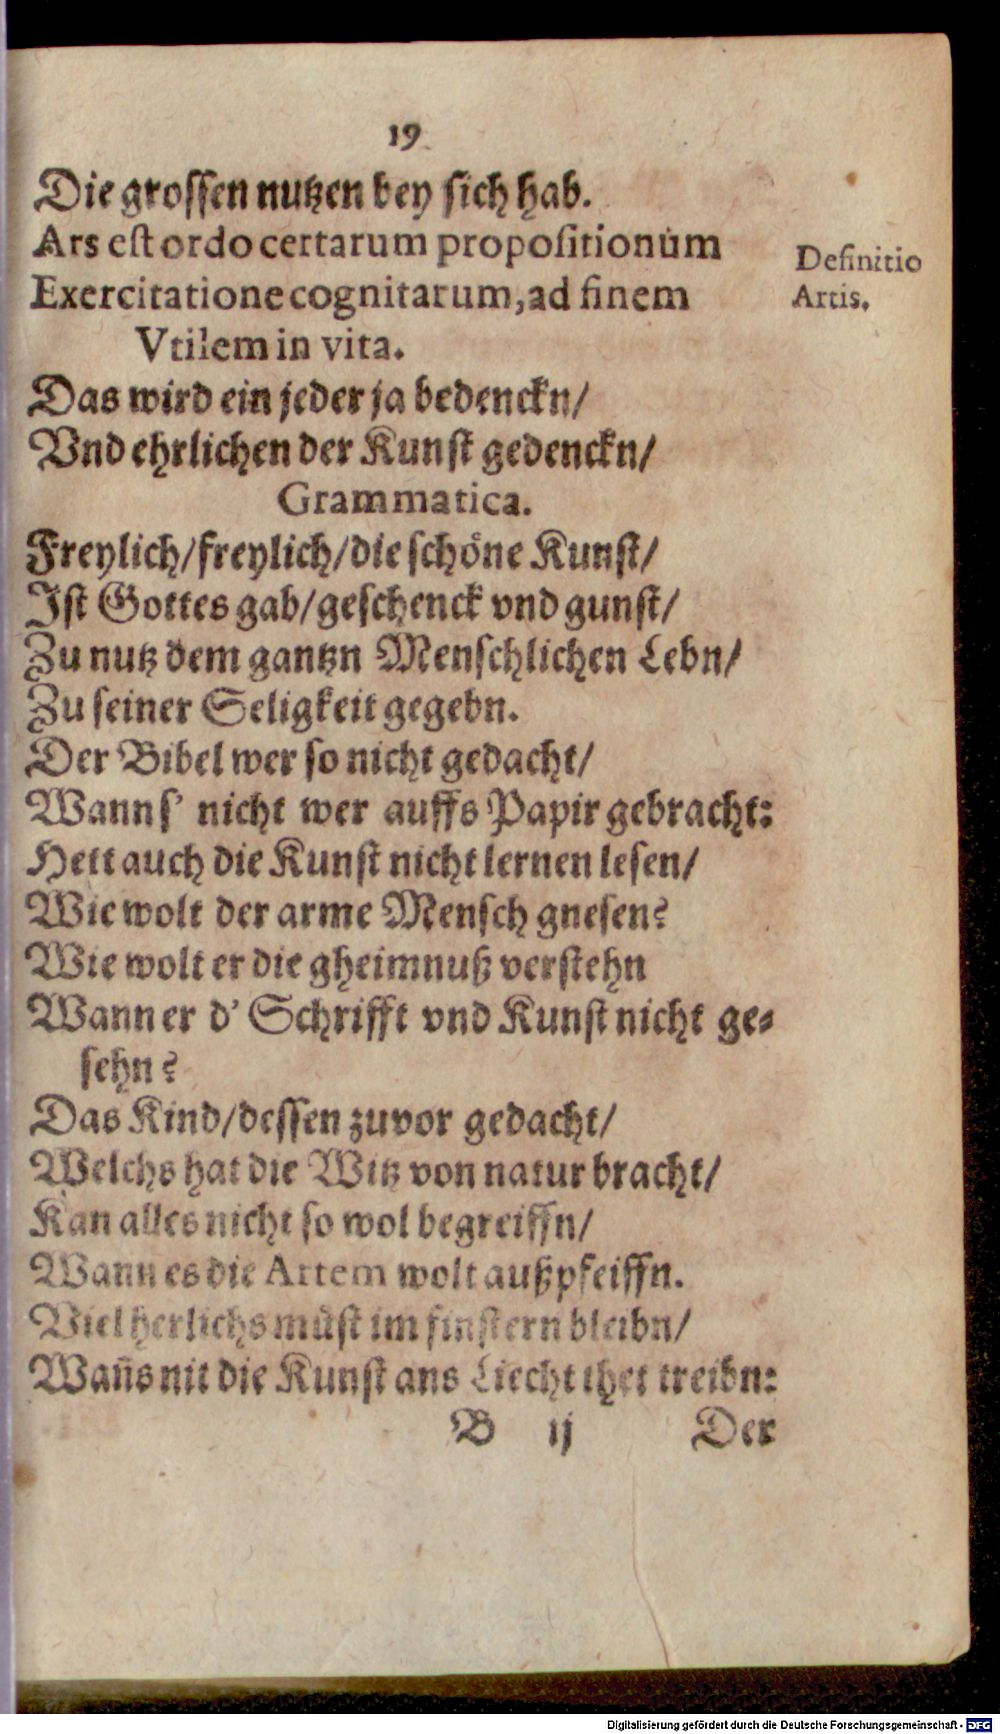 19
Die grossen nutzen bey sich hab.
Ars est ordo certarum propositionum
Definitio
Exercitatione cognitarum, ad finem
Artis.
Vtilem in vita.
Das wird ein jeder ja bedenckn/
Vnd ehrlichen der Kunst gedenckn/
Grammatica.
Freylich/freylich/die schöne Kunst/
Ist Gottes gab/geschenck vnd gunst/
Zu nutz dem gantzn Menschlichen Lebn/
Zu seiner Seligkeit gegebn.
Der Bibel wer so nicht gedacht/
Wanns' nicht wer auffs Papir gebracht:
Hett auch die Kunst nicht lernen lesen/
Wie wolt der arme Mensch gnesen?
Wie wolt er die gheimnuß verstehn
Wann er d' Schrifft vnd Kunst nicht ge-
sehn?
Das Kind/dessen zuvor gedacht/
Welchs hat die Witz von natur bracht/
Kan alles nicht so wol begreiffn/
Wann es die Artem wolt außpfeiffn.
Viel herlichs müst im finstern bleibn/
Wañs nit die Kunst ans Liecht thet treibn:
B ij Der
Digitalisierung gefördert durch die Deutsche Forschungsgemeinschaft - DFG